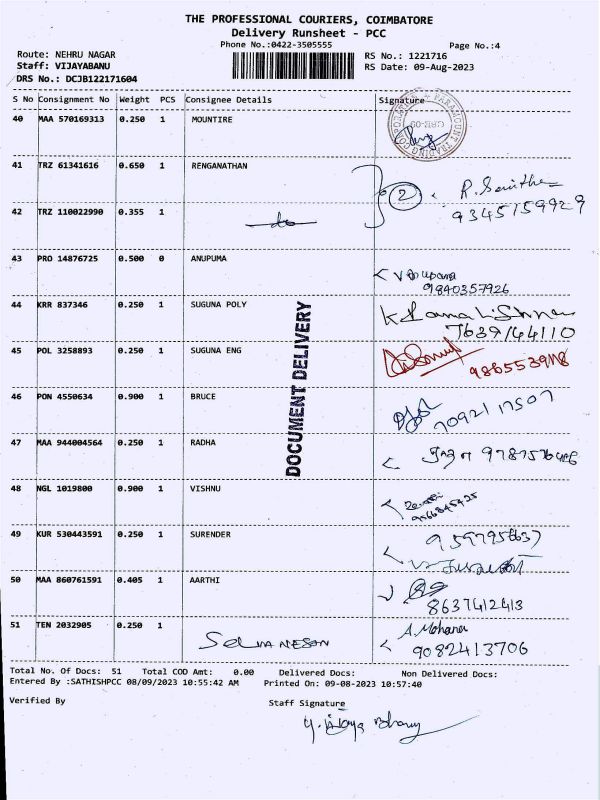 THE PROFESSIONAL COURIERS, COIMBATORE
Delivery Runsheet - PCC
Phone No.:0422-3505555
Page No.:4
Route: NEHRU NAGAR
Staff: VIJAYABANU
DRS No.: DCJB122171604
RS No.: 1221716
RS Date: 09-Aug-2023
S No Consignment No Weight PCS Consignee Details Signature
40 MAA 570169313 0.250 1 MOUNTIRE
41 TRZ 61341616 0.650 1 RENGANATHAN
2
9345159929
42 TRZ 110022990 0.355 1 do
43 PRO 14876725 0.500 0 ANUPUMA
9840357926
44 KRR 837346 0.250 1 SUGUNA POLY
7639144110
45 POL 3258893 0.250 1 SUGUNA ENG
46 PON 4550634 0.900 1 BRUCE
7092117507
47 MAA 944004564 0.250 1 RADHA
48 NGL 1019800 0.900 1 VISHNU
49 KUR 530443591 0.250 1 SURENDER
50 MAA 860761591 0.405 1 AARTHI
8637412413
51 TEN 2032905 0.250 1
A. Mohana
9082413706
DOCUMENT DELIVERY
Total No. Of Docs: 51 Total COD Amt: 0.00 Delivered Docs: Non Delivered Docs:
Entered By :SATHISHPCC 08/09/2023 10:55:42 AM Printed On: 09-08-2023 10:57:40
Verified By Staff Signature